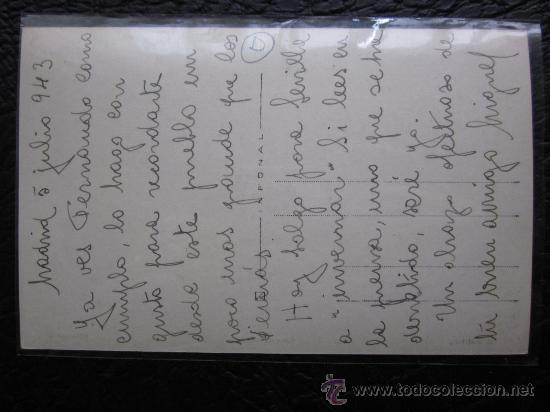 Madrid 5 julio 943
Ya ves Fernando como
cumplo, lo hago con
gusto para recordarte
desde este pueblo un
poco mas grande que los
demás
ESPONAL
Hoy salgo para Sevilla
a "invernar" Si lees en
la prensa, uno que se ha
derretido, seré yo.
Un abrazo afectuoso de
tu buen amigo Miguel
todocoleccion.net